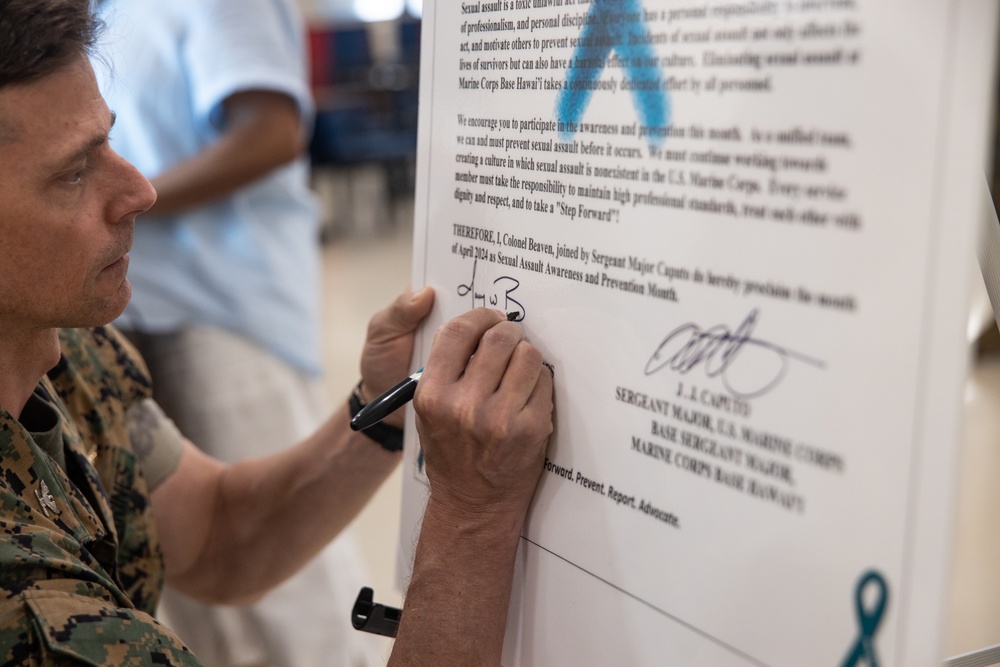 Sexual assault is a toxic unlawful act
of professionalism, and personal discipline. Everyone has a personal responsibility to intervene,
act, and motivate others to prevent sexual assault. Incidents of sexual assault not only affects the
lives of survivors but can also have a harmful effect on our culture. Eliminating sexual assault at
Marine Corps Base Hawai'i takes a continuously dedicated effort by all personnel.
We encourage you to participate in the awareness and prevention this month. As a unified team,
we can and must prevent sexual assault before it occurs. We must continue working towards
creating a culture in which sexual assault is nonexistent in the U.S. Marine Corps. Every service
member must take the responsibility to maintain high professional standards, treat each other with
dignity and respect, and to take a "Step Forward"!
THEREFORE, I, Colonel Beaven, joined by Sergeant Major Caputo do hereby proclaim the month
of April 2024 as Sexual Assault Awareness and Prevention Month.
J. J. CAPUTO
SERGEANT MAJOR, U.S. MARINE CORPS
BASE SERGEANT MAJOR,
MARINE CORPS BASE HAWAI'I
Forward. Prevent. Report. Advocate.